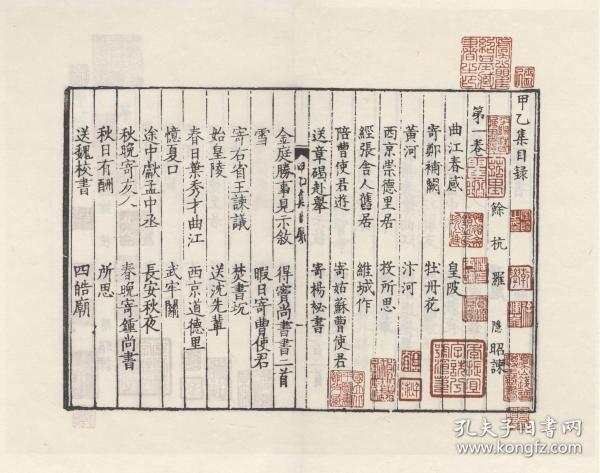 甲乙集目録
第一卷 餘杭 羅隱 昭諫
曲江春感 皇陂
寄鄭補闕 牡丹花
黃河 汴河
西京崇德里居 投所思
經張舍人舊居 維城作
陪曹使君遊 寄姑蘇曹使君
送章碣赴舉 寄楊祕書
金庭勝事見示敘 得竇尚書書二首
雪 暇日寄曹使君
寄右省王諫議 焚書坑
始皇陵 送沈先輩
春日葉秀才曲江 西京道德里
憶夏口 武牢關
途中獻孟中丞 長安秋夜
秋晚寄友人 春晚寄鍾尚書
秋日有酬 所思
送魏校書 四皓廟
孔夫子旧书网
www.kongfz.com